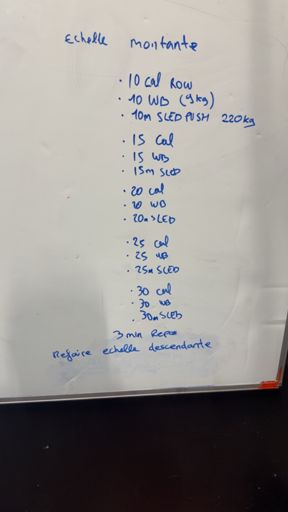 Echelle montante
· 10 Cal ROW
· 10 WB (9kg)
· 10m SLED PUSH 220kg
· 15 Cal
· 15 WB
· 15m SLED
· 20 cal
· 20 WB
· 20m SLED
· 25 cal
· 25 WB
· 25m SLED
· 30 cal
· 30 WB
· 30m SLED
3 min Repos
Refaire echelle descendante